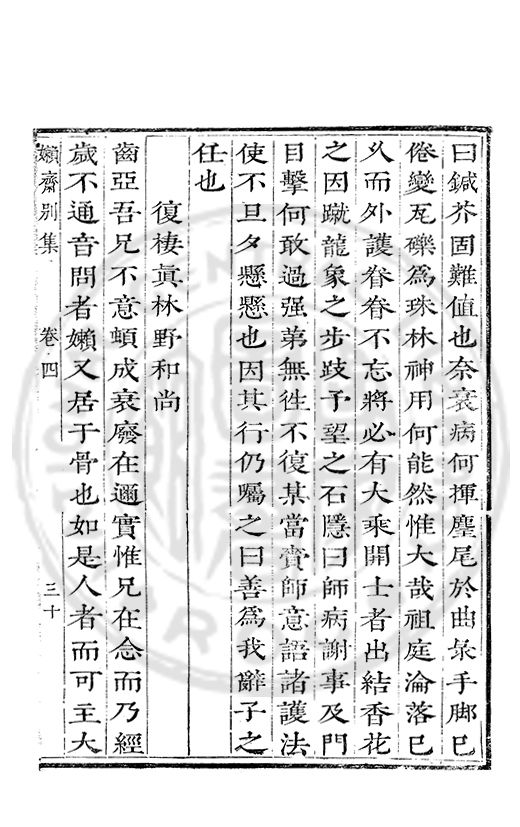 曰鍼芥固難值也奈衰病何揮麈尾於曲彔手脚已
倦變瓦礫爲珠林神用何能然惟大哉祖庭淪落已
乆而外護眷眷不忘將必有大乘開士者出結香花
之因蹴龍象之步跂予望之石隱曰師病謝事及門
目擊何敢過强第無徃不復某當賫師意語諸護法
使不旦夕懸懸也因其行仍囑之曰善爲我辭子之
任也
復棲眞林野和尚
齒亞吾兄不意頓成衰廢在邇實惟兄在念而乃經
歲不通音問者嬾又居于骨也如是人者而可主大
嬾齋別集 卷四 三十